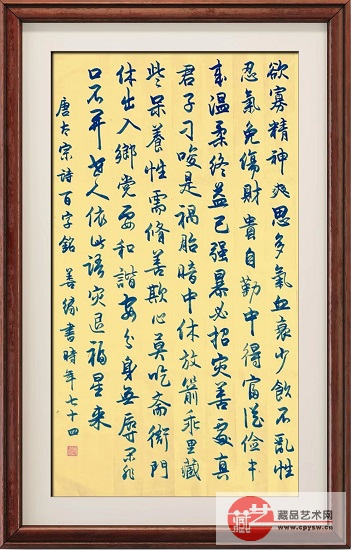 欲寡精神爽思多氣血衰少飲不亂性
忍氣免傷財貴自勤中得富從儉中
来温柔終益己强暴必招災善處真
君子刁唆是禍胎暗中休放箭乖里藏
些呆養性需修善欺心莫吃斋衙門
休出入鄉党要和諧安分身無辱閑非
口不开世人依此語灾退福星来
唐太宗詩百字銘 善缘書時年七十四
藏艺
藏品艺术网
www.cpysw.cn